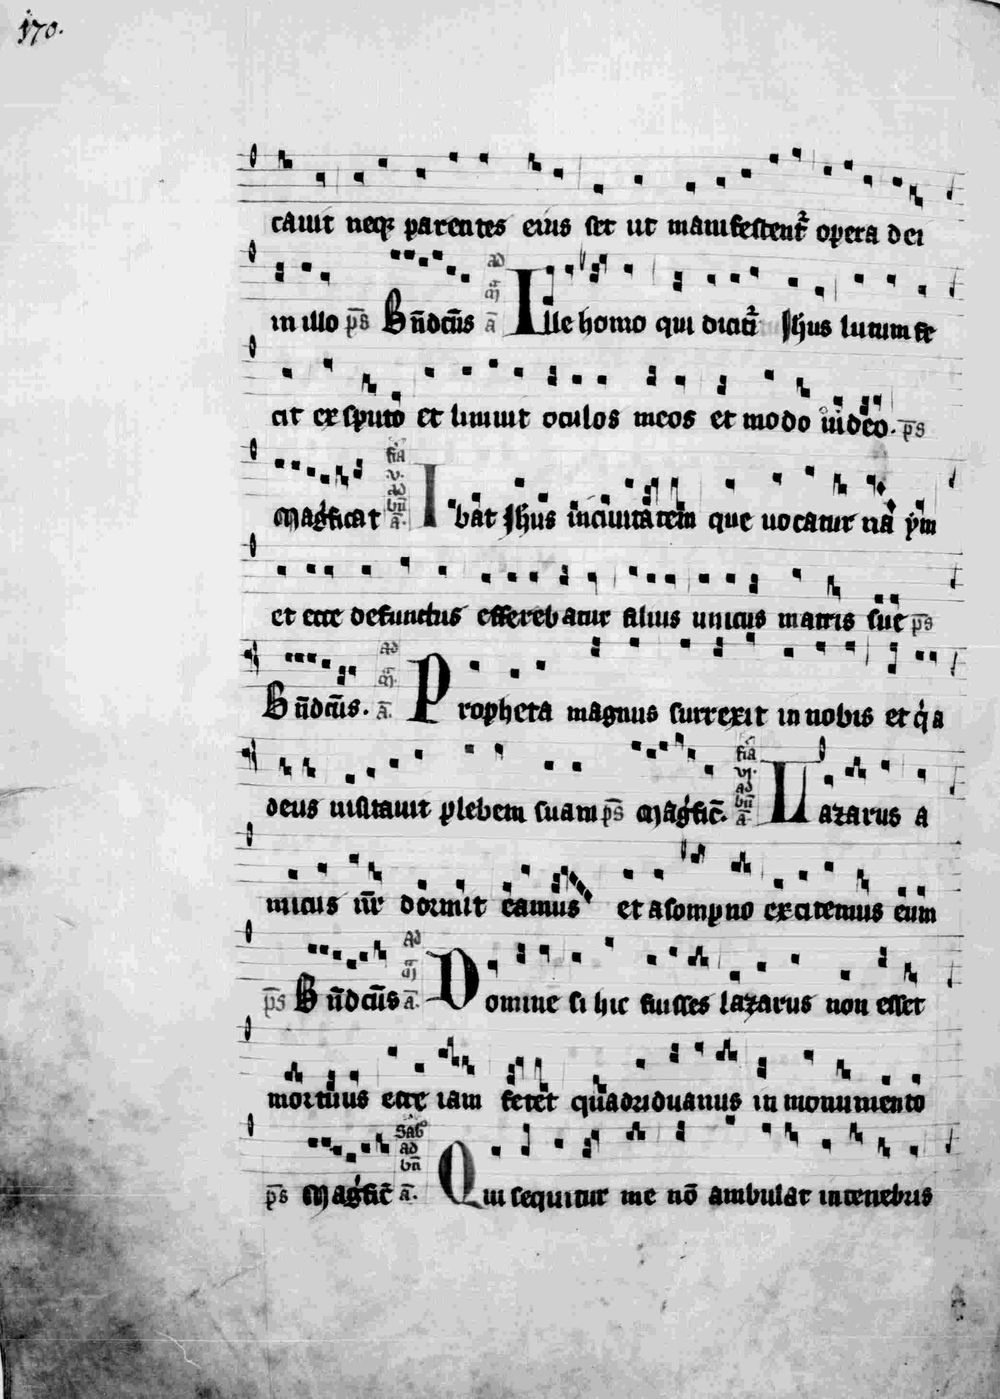 170.
cauit neqꝫ parentes eius set ut manifestent᷑ opera dei
in illo p̅s B̅n̅dcu̅s ad m̅ a̅ Ille homo qui dicit᷑ Jhus lutum fe
cit ex sputo et liniuit oculos meos et modo uideo. p̅s
magficat fia v. ad bn̅ a̅. Ibat Jhus in ciuitatem que uocatur na ym
et ecce defunctus efferebatur filius unicus matris sue p̅s
B̅n̅dcu̅s. ad m̅. a̅. Propheta magnus surrexit in nobis et q̇a
deus uisitauit plebem suam p̅s magfic̅. fia vi. ad bn̅ a̅ Lazarus a
micus n̅r dormit eamus et a sompno excitemus eum
p̅s B̅n̅dcu̅s Ad m̅ a̅. Domine si hic fuisses lazarus non esset
mortuus ecce iam fetet quadriduanus in monumento
p̅s magfic̅ Sabo ad bn̅ a̅. Qui sequitur me no̅ ambulat in tenebris